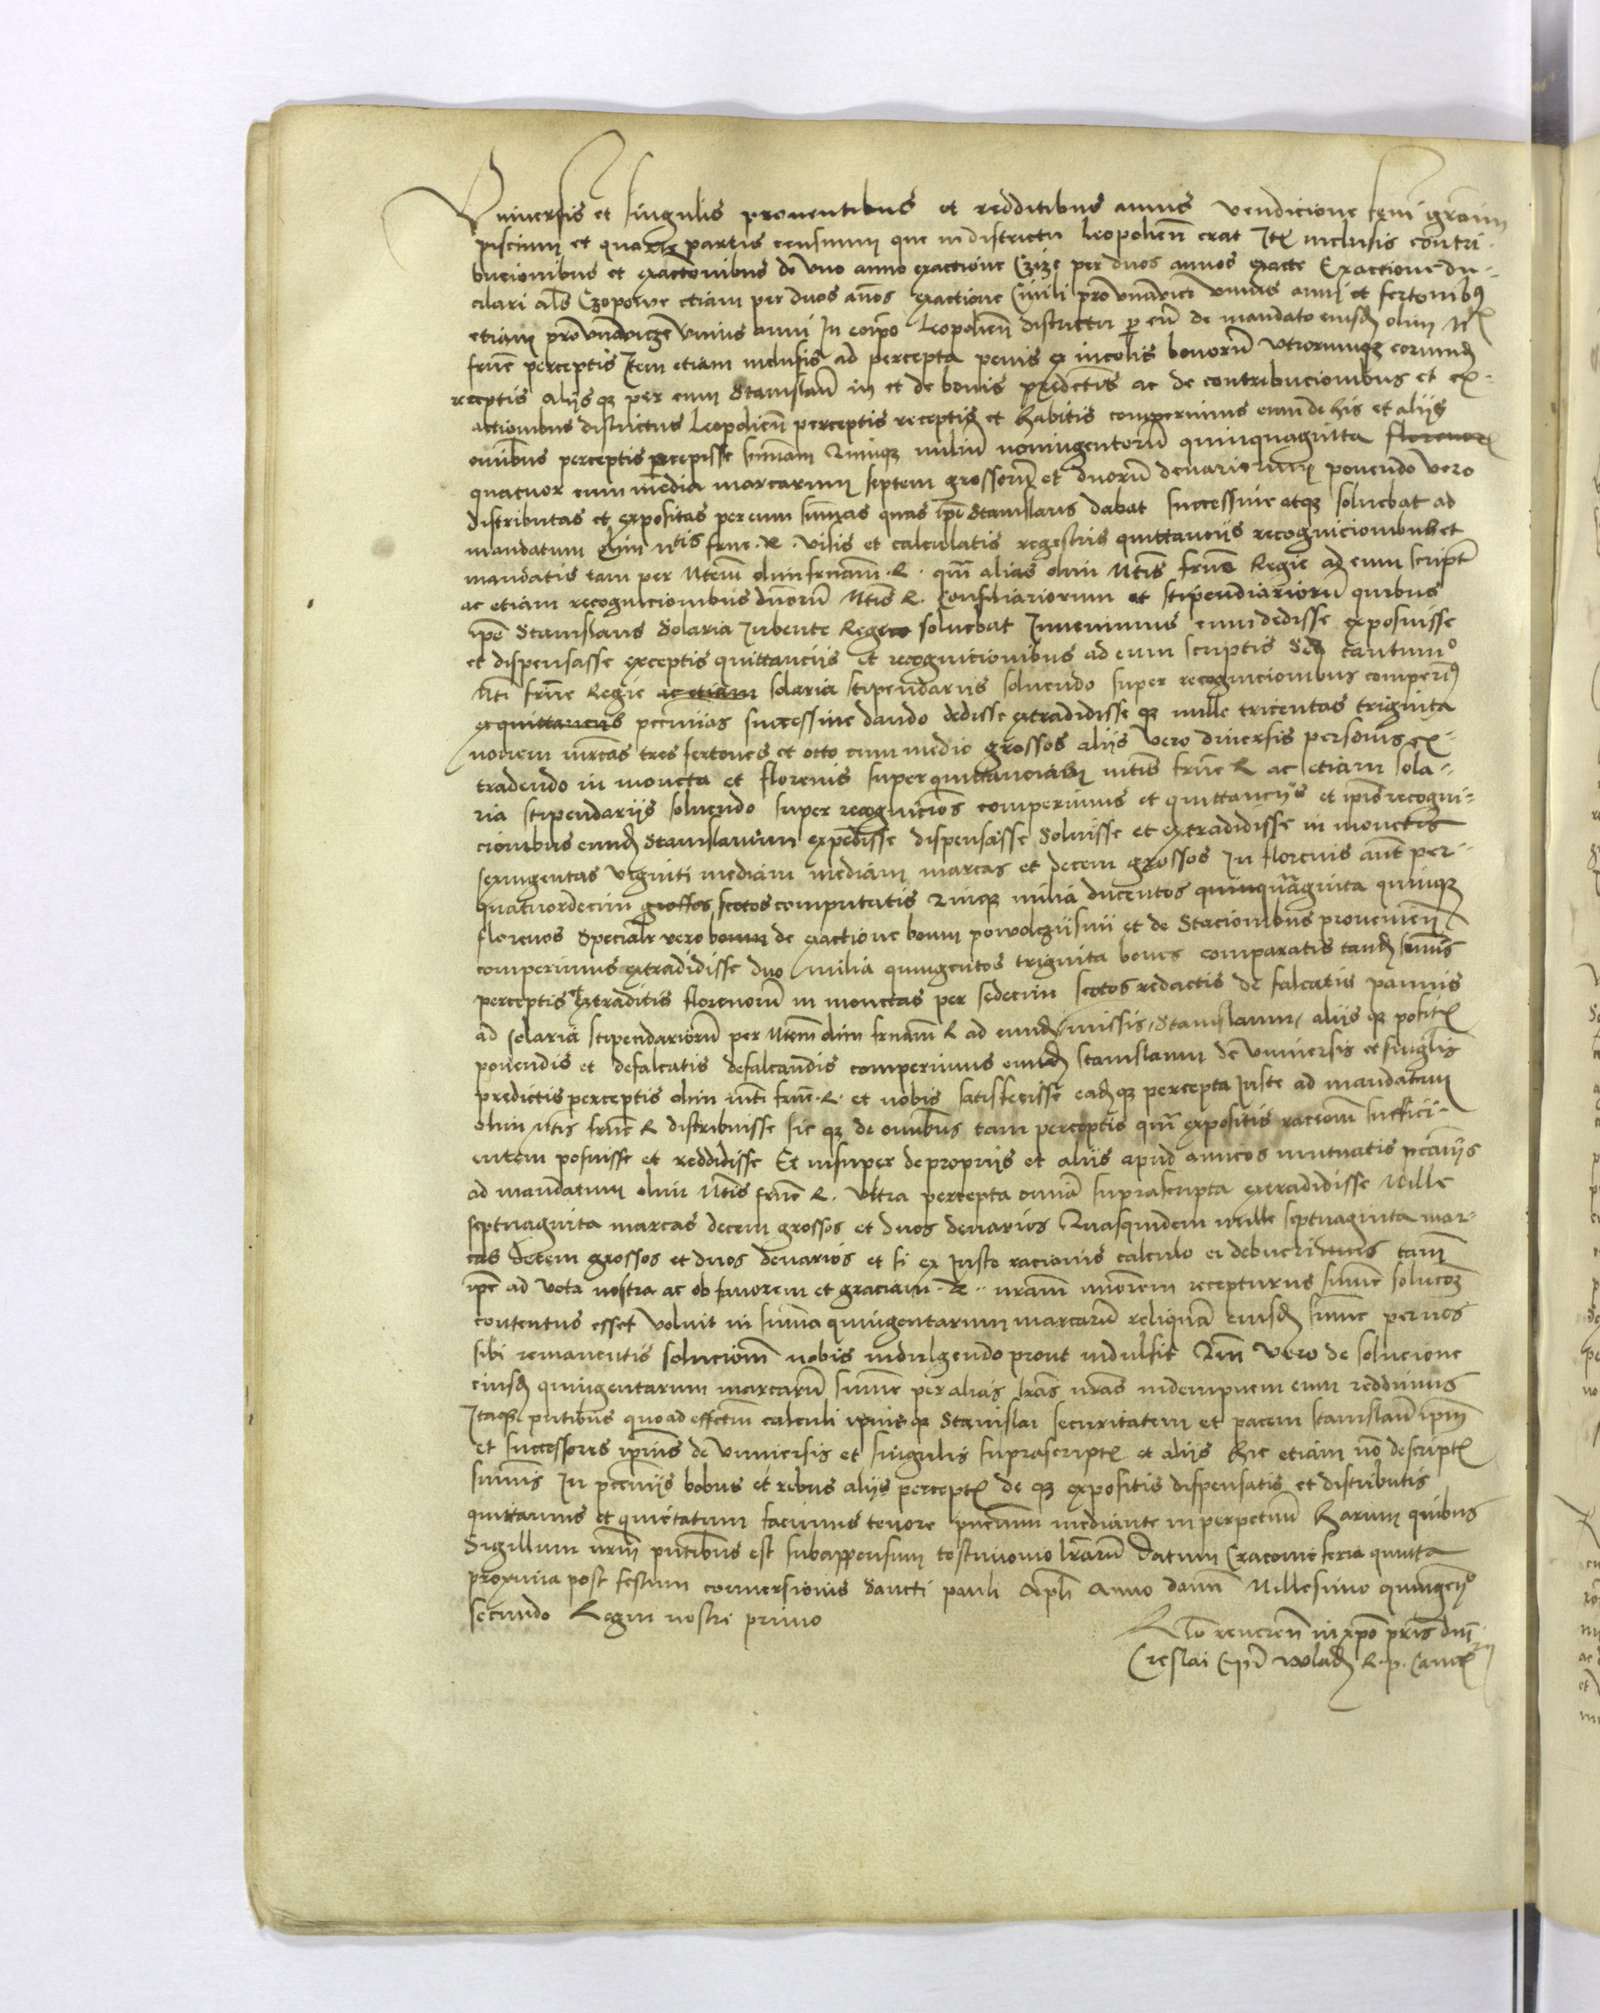 Universis et singulis proventibus et redditibus annis vendicione feni granorum
piscium et quarte partis censuum que in districtu Leopolien̄ erat Itē inclusis contri-
bucionibus et exactionibus de uno anno exactione Czize per duos annos exacte Exactione du-
cilari als Czopowe etiam per duos an̄os exactione Civili unius anni et fertonibꝫ
etiam unius anni In Leopolien̄ districtu per eū de mandato eiusdē olim
frn̄e perceptis Item etiam inclusis ad percepta penis ex incolis bonorū utrorumqꝫ eorundē
receptis aliisqꝫ per eum Stanislaū in et de bonis predictis ac de contribucionibus et ex-
actionibus districtus Leopolien̄ perceptis receptis et habitis comperimus eum de his et aliis
omībus perceptis percepisse sum̄am Quinqꝫ miliū noningentorū quinquaginta florenorꝫ
quatuor cum media marcarum septem grossorū et duorū denariorum ponendo vero
distributas et expositas per eum sum̄as quas ip̄e Stanislaus dabat successive atqꝫ solvebat ad
mandatum olim Mtis frne R. visis et calculatis regestris quittanciis recognicionibus et
mandatis tam per Mtem̄ olim frnam̄ R. qm̄ alias olim Mtis frn̄e Regie ad eum scriptꝫ
ac etiam recognicionibus dn̄orū Mtis R. Consiliariorum et stipendiariorū quibus
ip̄e Stanislaus Solaria iubente Rege solvebat Invenimus eum dedisse exposuisse
et dispensasse exceptis quittanciis et recognicionibus ad eum scriptis Sed tantumo
Mti frn̄e Regie ac etiam solaria stipendariis solvendo super recognicionibus comperimꝫ
et quittanciis pecunias successive dando dedisse extradidisseqꝫ mille tricentas triginta
novem mrcas tres fertones et octo cum medio grossos aliis vero diversis personis ex-
tradendo in moneta et florenis super quittanciam mtis frn̄e R ac etiam sola-
ria stipendariis solvendo super recognicion̄s comperimus et quittanciis et ip̄is recogni-
cionibus eundē Stanislaum expedisse dispensasse Solvisse et extradidisse in monetis
sexingentas viginti mediam mediam marcas et decem grossos In florenis aut̄ per
quatuordecim grossos scotos computatis Quinqꝫ milia ducentos quinquaginta quinqꝫ
florenos Specialr̄ vero boum de exactione boum powolczizni et de Stacionibus provenien̄
comperimus extradidisse duo milia quingentos triginta boves comparatis tandē sum̄is
perceptis et extraditis florenorū in monetas per sedecim scotos redactis defalcatis pannis
ad solaria stipendariorū per Mtem̄ olim frnam̄ R ad eundē missis Stanislaum aliisqꝫ positꝫ
ponendis et defalcatis defalcandis comperimus eundē Stanislaum de universis et singulis
predictis perceptis olim mti frn̄e R. et nobis satisfecisse eadēqꝫ percepta iuste ad mandatum
olim Mtis frn̄e R distribuisse sicqꝫ de omībus tam perceptis qm̄ expositis racionem suffici-
entem posuisse et reddidisse Et insuper de propriis et aliis apud amicos mutuatis pecuniis
ad mandatum olim Mtis frn̄e R. Ultra percepta omīa suprascripta extradidisse Mille
septuaginta marcas decem grossos et duos denarios Quasquidem mille septuaginta mar-
cas decem grossos et duos denarios et si ex iusto racionis calculo ei debuerimus tam̄
ip̄e ad vota nostra ac ob favorem et graciam R nram̄ maiorem recepturus sum̄e solucoē
contentus esset voluit in sum̄a quingentarum marcarū reliquam eiusdē sum̄e per nos
sibi remanentis solucionem nobis indulgendo prout indulsit Qm̄ vero de solucione
eiusdē quingentarum marcarū sum̄e per alias lrās nrās indempnem eum reddimus
Itaqꝫ pn̄tibus quoad effectum calculi ipsiusqꝫ Stanislai securitatem et pacem Stanislaū ip̄m
et successores ip̄ius de universis et singulis suprascriptꝫ et aliis hic etiam nō descriptꝫ
sum̄is In pecuniis bobus et rebus aliis perceptꝫ deqꝫ expositis dispensatis et distributis
quittamus et quietatum facimus tenore pn̄cium mediante in perpetuū Harum quibus
Sigillum nrm̄ pn̄tibus est subappensum testimonio lrārū Datum Cracovie feria quinta
proxima post festum conversionis Sancti pauli Apl̄i Anno domī Millesimo quingenō
secundo Regni nostri primo
Rlō reveren̄ in xpō pris dnī
Creslai Ep̄i wladē R. p. Cancꝫ